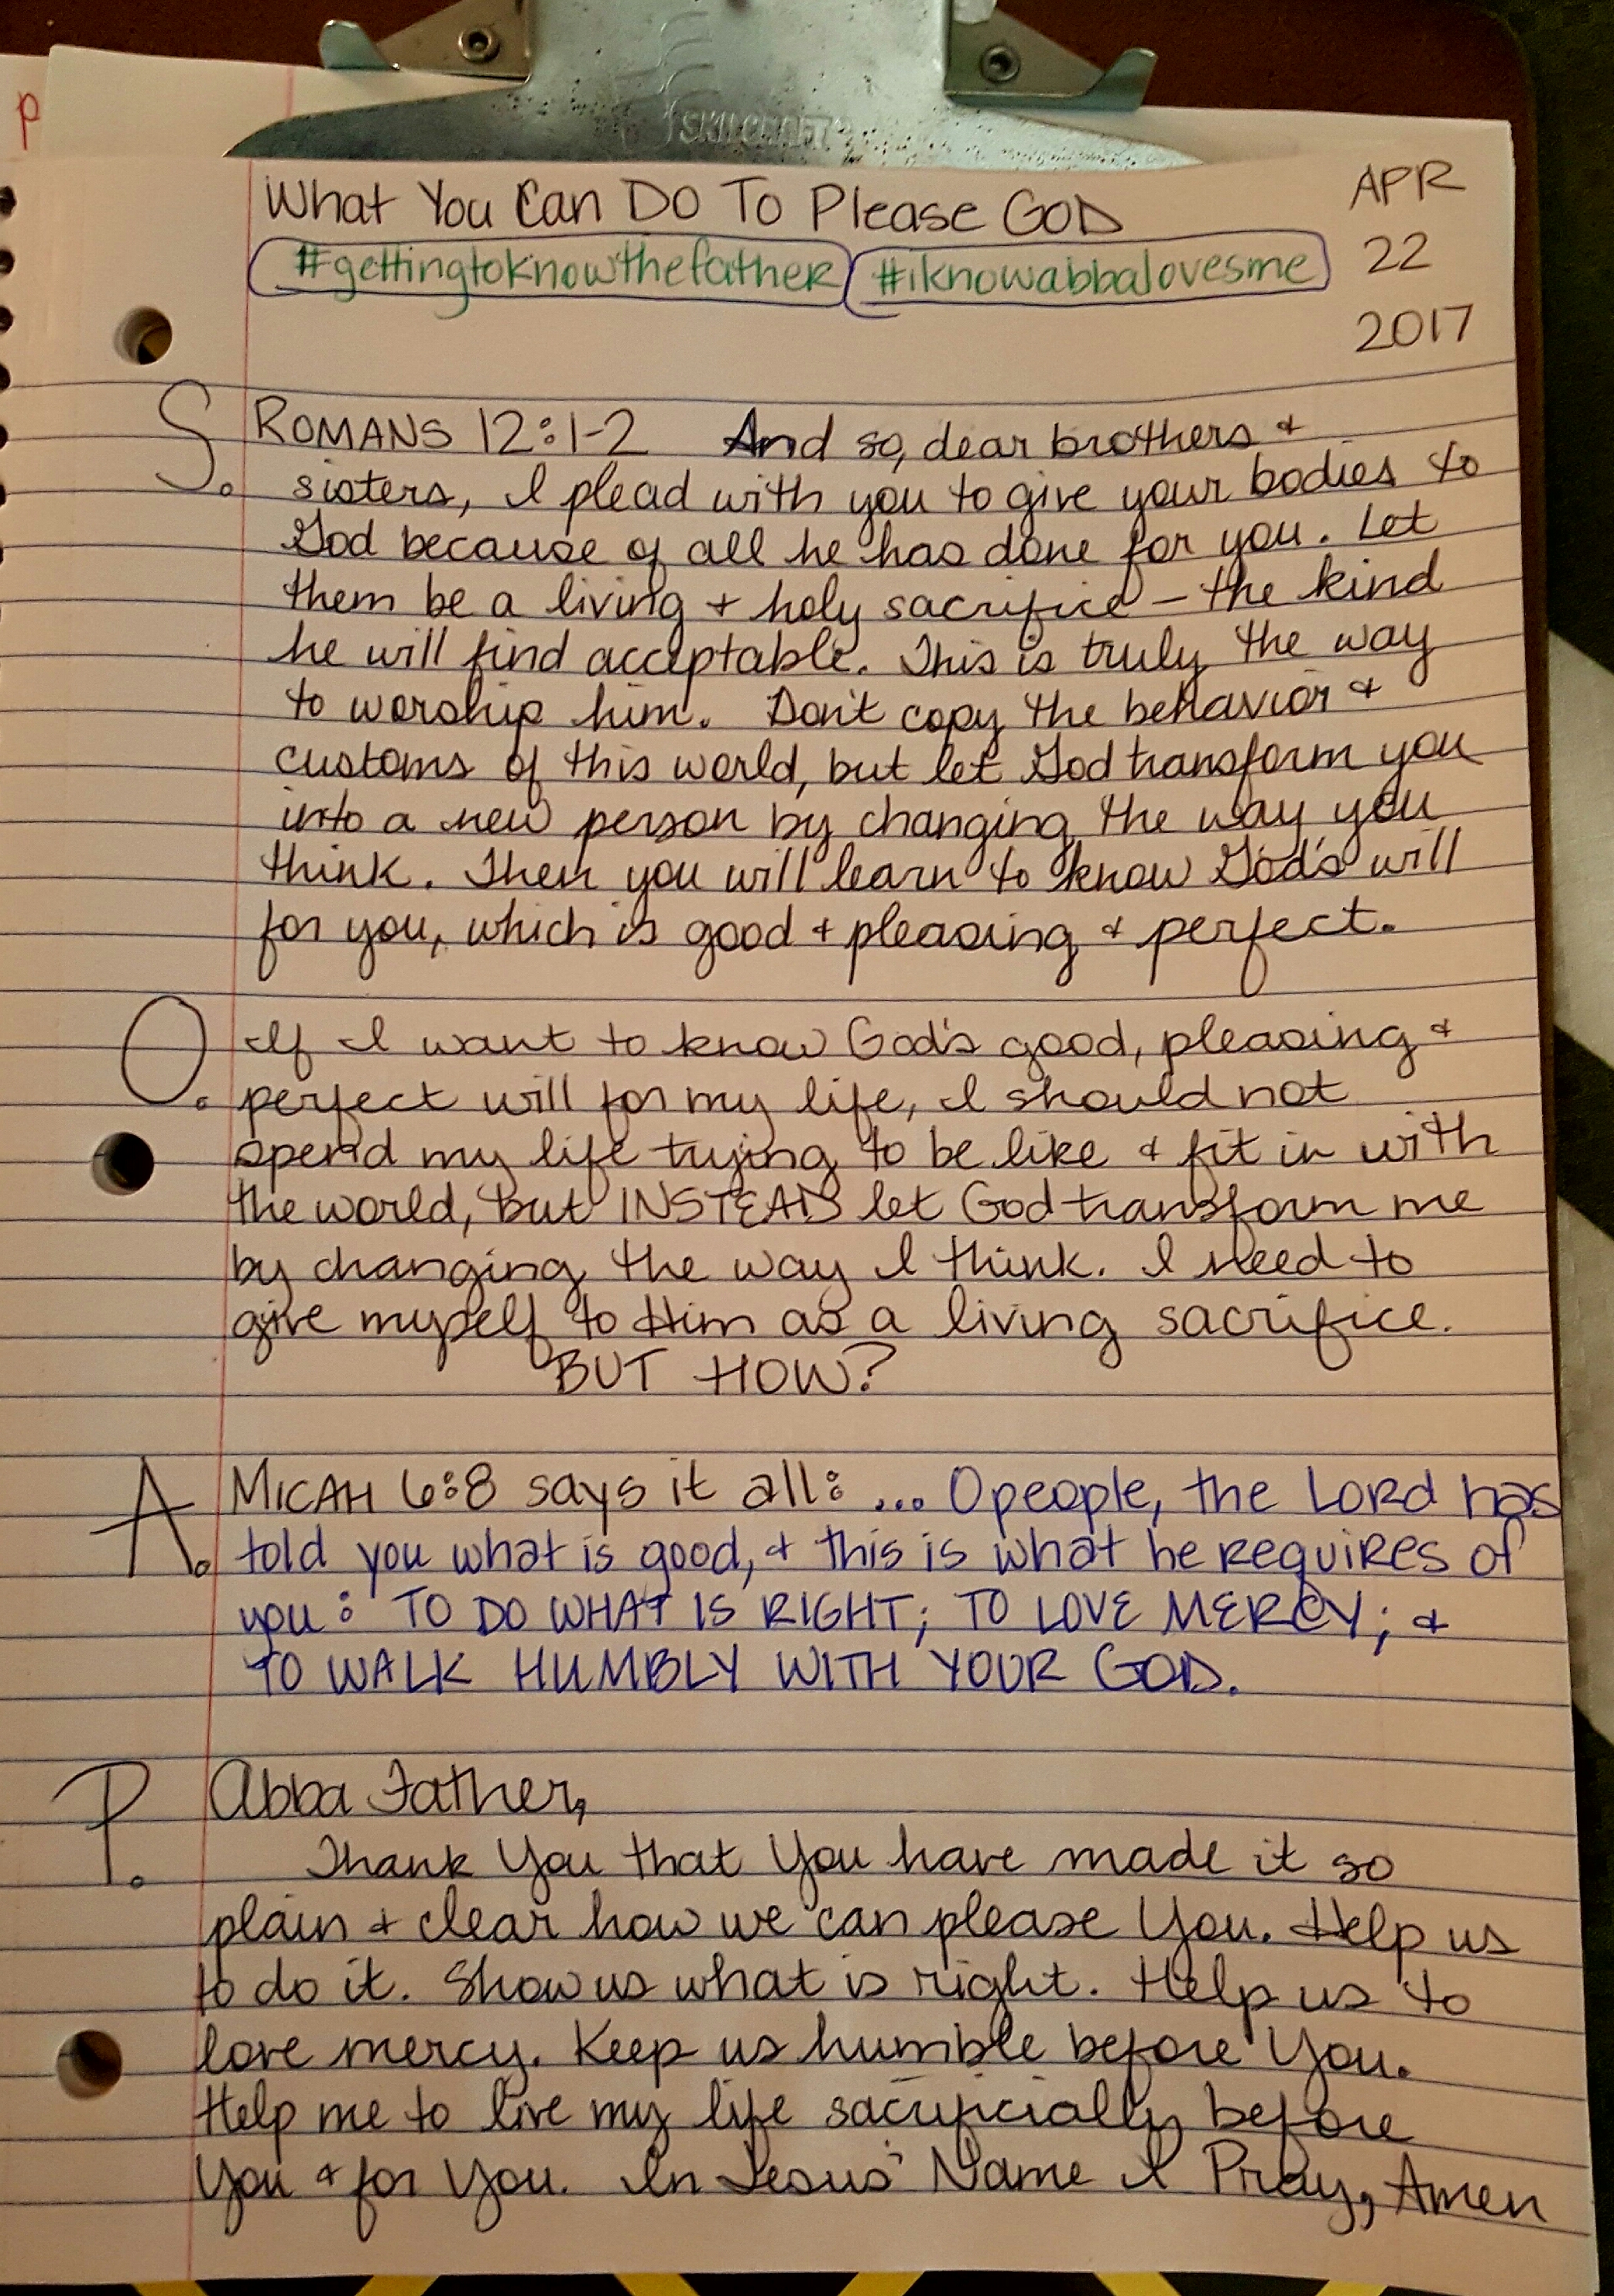 p
SKILCRAFT
What You Can Do To Please GOD
APR
#gettingtoknowthefather #iknowabbalovesme
22
2017
S. ROMANS 12:1-2 And so, dear brothers &
sisters, I plead with you to give your bodies to
God because of all he has done for you. Let
them be a living & holy sacrifice – the kind
he will find acceptable. This is truly the way
to worship him. Don't copy the behavior &
customs of this world, but let God transform you
into a new person by changing the way you
think. Then you will learn to know God's will
for you, which is good & pleasing & perfect.
O. If I want to know God's good, pleasing &
perfect will for my life, I should not
spend my life trying to be like & fit in with
the world, but INSTEAD let God transform me
by changing the way I think. I need to
give myself to Him as a living sacrifice.
BUT HOW?
A. MICAH 6:8 says it all: ... O people, the LORD has
told you what is good, & this is what he requires of
you: TO DO WHAT IS RIGHT; TO LOVE MERCY; &
TO WALK HUMBLY WITH YOUR GOD.
P. Abba Father,
Thank You that You have made it so
plain & clear how we can please You. Help us
to do it. Show us what is right. Help us to
love mercy. Keep us humble before You.
Help me to live my life sacrificially before
You & for You. In Jesus' Name I Pray, Amen